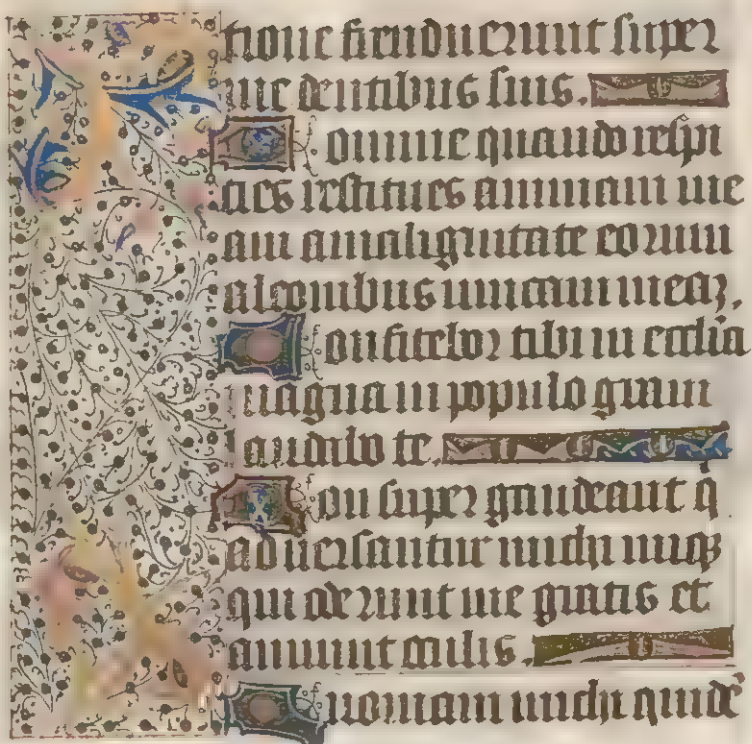 tione frenduerunt super
me dentibus suis.
Domine quando respi
cies restitues animam me
am a malignitate eorum
a leonibus unicam meaʒ.
Confitebor tibi in ecclia
magna in populo graui
laudabo te.
Non super gaudeant q̇
aduersantur michi iniq
qui oderunt me gratis et
annuunt oculis.
Quoniam michi quidē